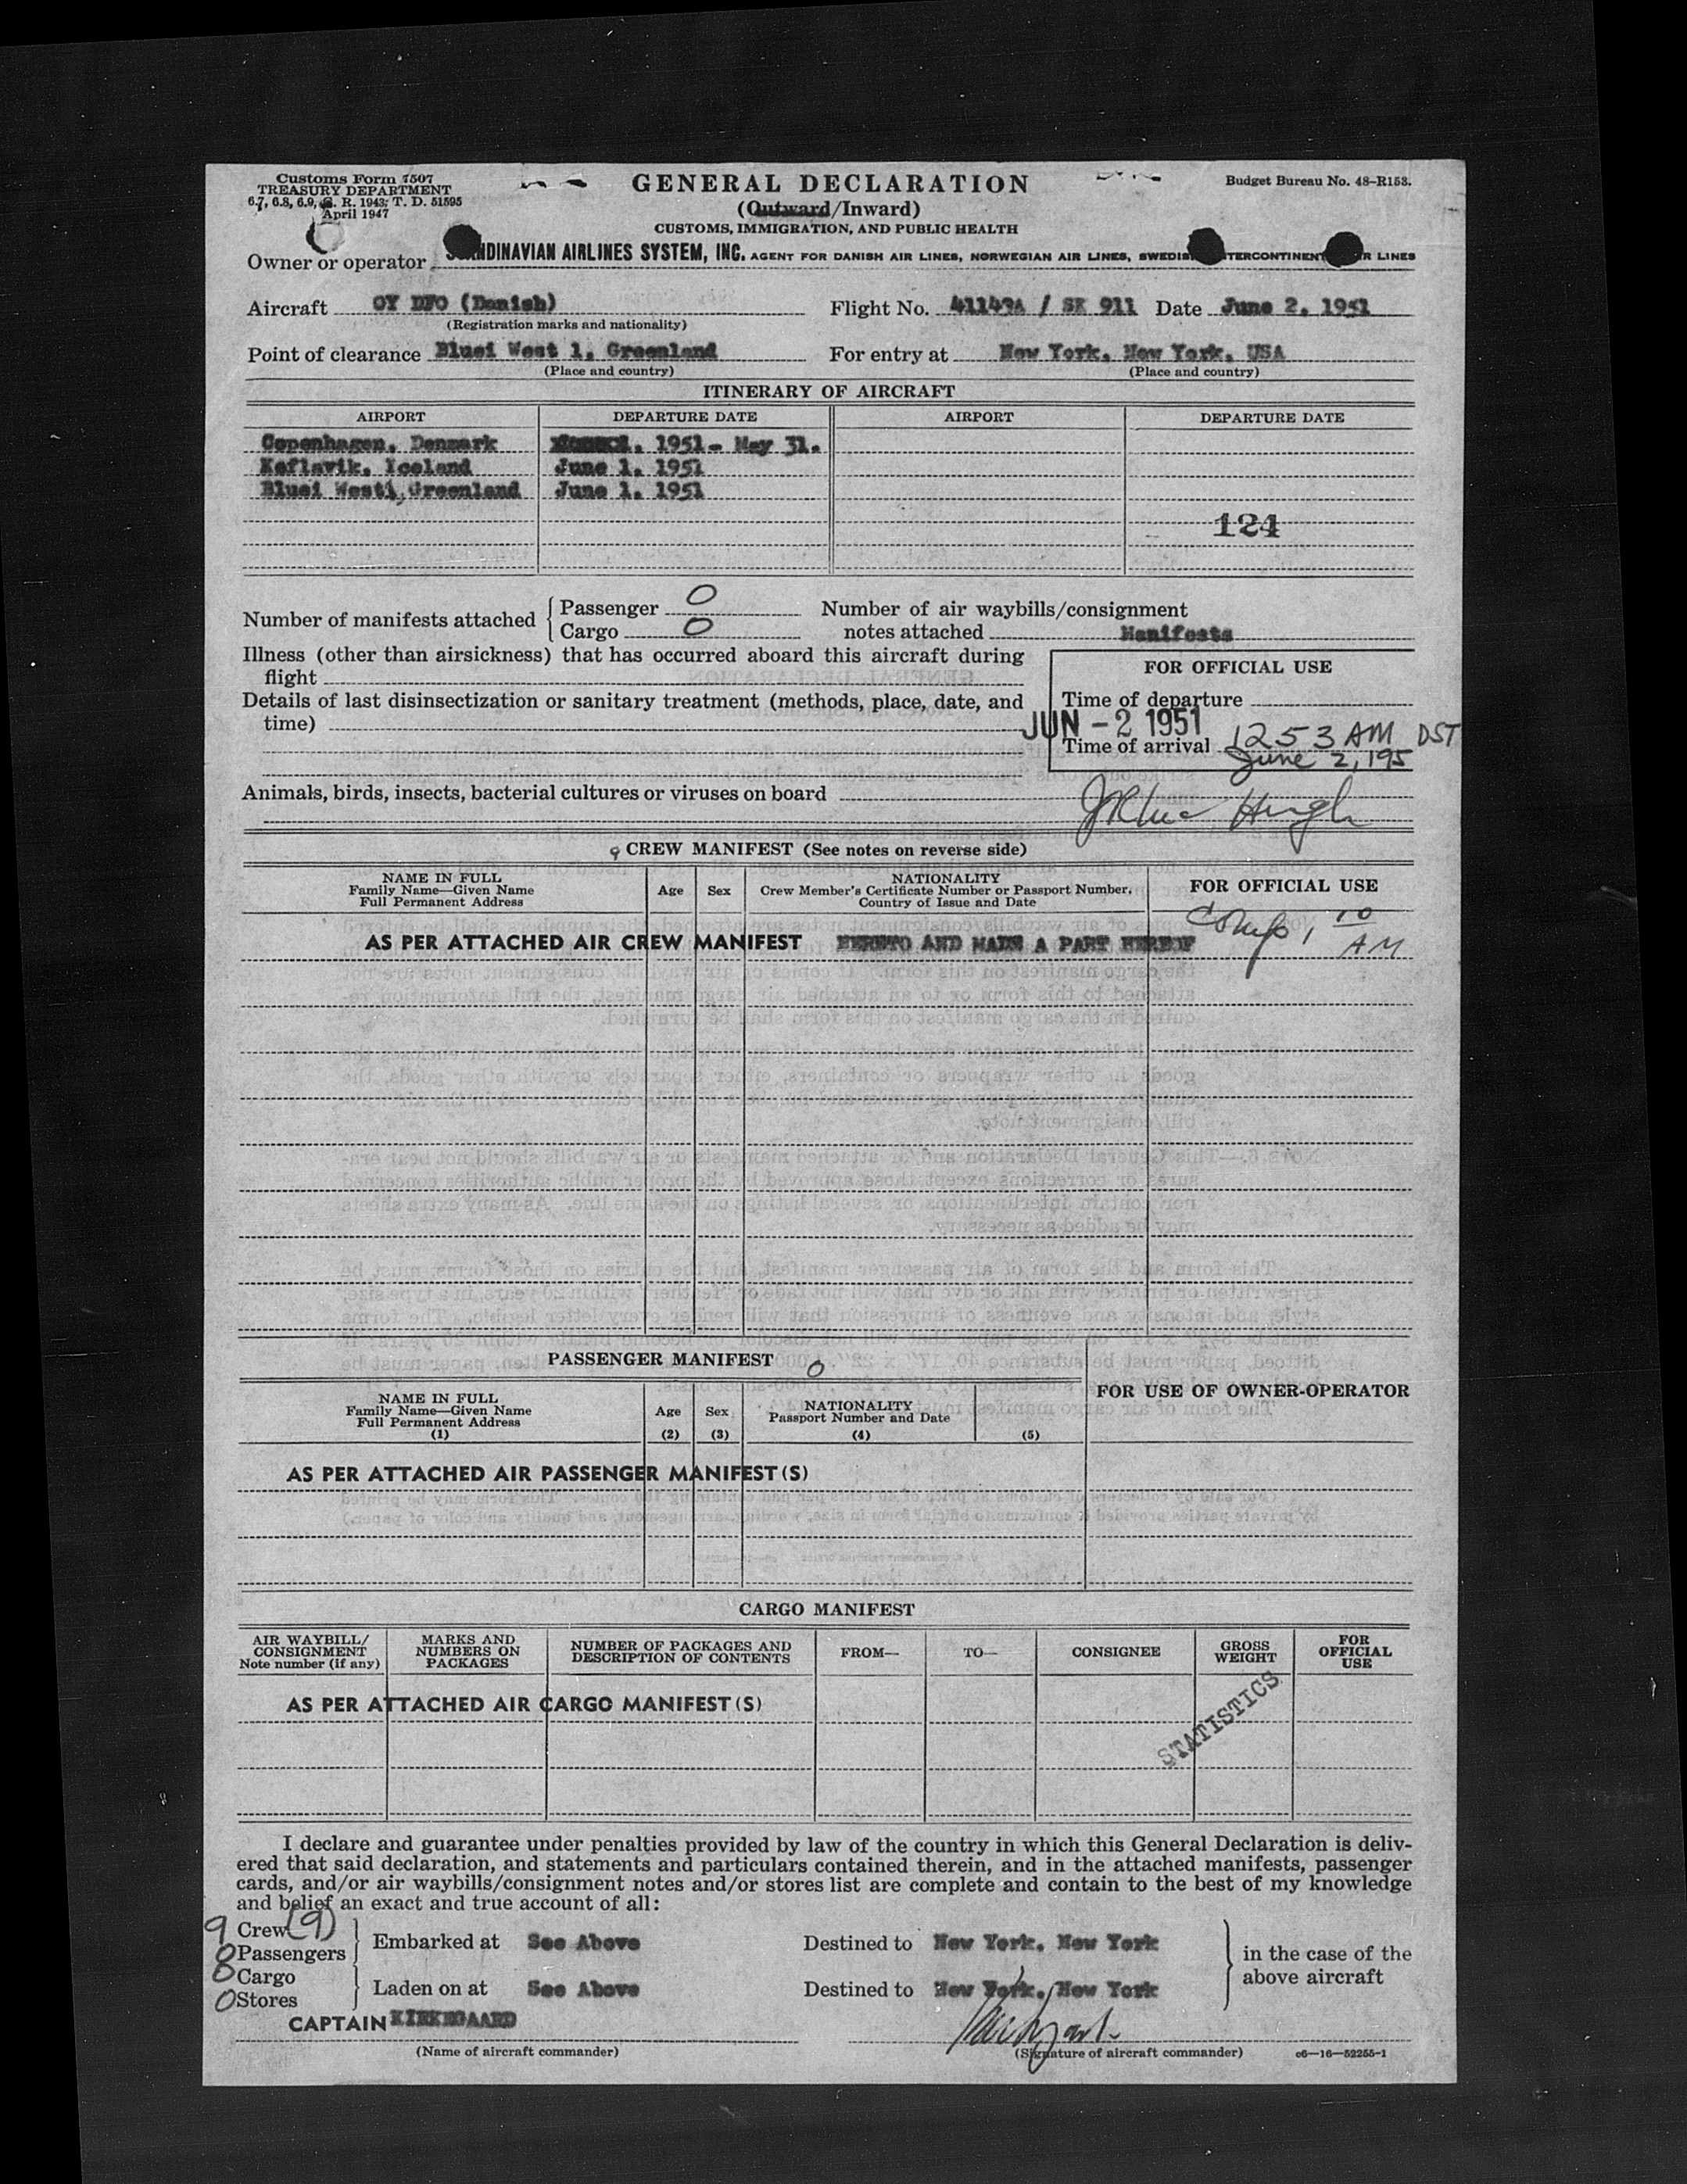 Customs Form 7507
TREASURY DEPARTMENT
6.7, 6.8, 6.9, C. R. 1943; T. D. 51595
April 1947
GENERAL DECLARATION
(Outward/Inward)
CUSTOMS, IMMIGRATION, AND PUBLIC HEALTH
Budget Bureau No. 48-R153.
Owner or operator NDINAVIAN AIRLINES SYSTEM, INC. AGENT FOR DANISH AIR LINES, NORWEGIAN AIR LINES, SWEDIS TERCONTINEN R LINES
Aircraft OY DFO (Danish) Flight No. 41149A / SK 911 Date June 2, 1951
(Registration marks and nationality)
Point of clearance Bluei West 1, Greenland For entry at New York, New York, USA
(Place and country) (Place and country)
ITINERARY OF AIRCRAFT
AIRPORT DEPARTURE DATE AIRPORT DEPARTURE DATE
Copenhagen, Denmark 1951- May 31.
Keflavik, Iceland June 1, 1951
Bluei West1, Greenland June 1, 1951
124
Number of manifests attached { Passenger 0 Number of air waybills/consignment
Cargo 0 notes attached Manifests
Illness (other than airsickness) that has occurred aboard this aircraft during
flight
FOR OFFICIAL USE
Details of last disinsectization or sanitary treatment (methods, place, date, and
time)
Time of departure
JUN - 2 1951
Time of arrival 1253 AM DST
June 2, 195
Animals, birds, insects, bacterial cultures or viruses on board
9 CREW MANIFEST (See notes on reverse side)
NAME IN FULL
Family Name—Given Name
Full Permanent Address
Age Sex
NATIONALITY
Crew Member's Certificate Number or Passport Number,
Country of Issue and Date
FOR OFFICIAL USE
AS PER ATTACHED AIR CREW MANIFEST HERETO AND MADE A PART HEREOF
10 AM
PASSENGER MANIFEST 0
NAME IN FULL
Family Name—Given Name
Full Permanent Address
(1)
Age
(2)
Sex
(3)
NATIONALITY
Passport Number and Date
(4) (5)
FOR USE OF OWNER-OPERATOR
AS PER ATTACHED AIR PASSENGER MANIFEST (S)
CARGO MANIFEST
AIR WAYBILL/
CONSIGNMENT
Note number (if any)
MARKS AND
NUMBERS ON
PACKAGES
NUMBER OF PACKAGES AND
DESCRIPTION OF CONTENTS
FROM— TO— CONSIGNEE
GROSS
WEIGHT
FOR
OFFICIAL
USE
AS PER ATTACHED AIR CARGO MANIFEST (S)
STATISTICS
I declare and guarantee under penalties provided by law of the country in which this General Declaration is deliv-
ered that said declaration, and statements and particulars contained therein, and in the attached manifests, passenger
cards, and/or air waybills/consignment notes and/or stores list are complete and contain to the best of my knowledge
and belief an exact and true account of all:
9 Crew (9)
0 Passengers
Embarked at See Above Destined to New York, New York
0 Cargo
0 Stores
Laden on at See Above Destined to New York, New York
in the case of the
above aircraft
CAPTAIN KIRKEGAARD
(Name of aircraft commander) (Signature of aircraft commander) c6—16—52255-1